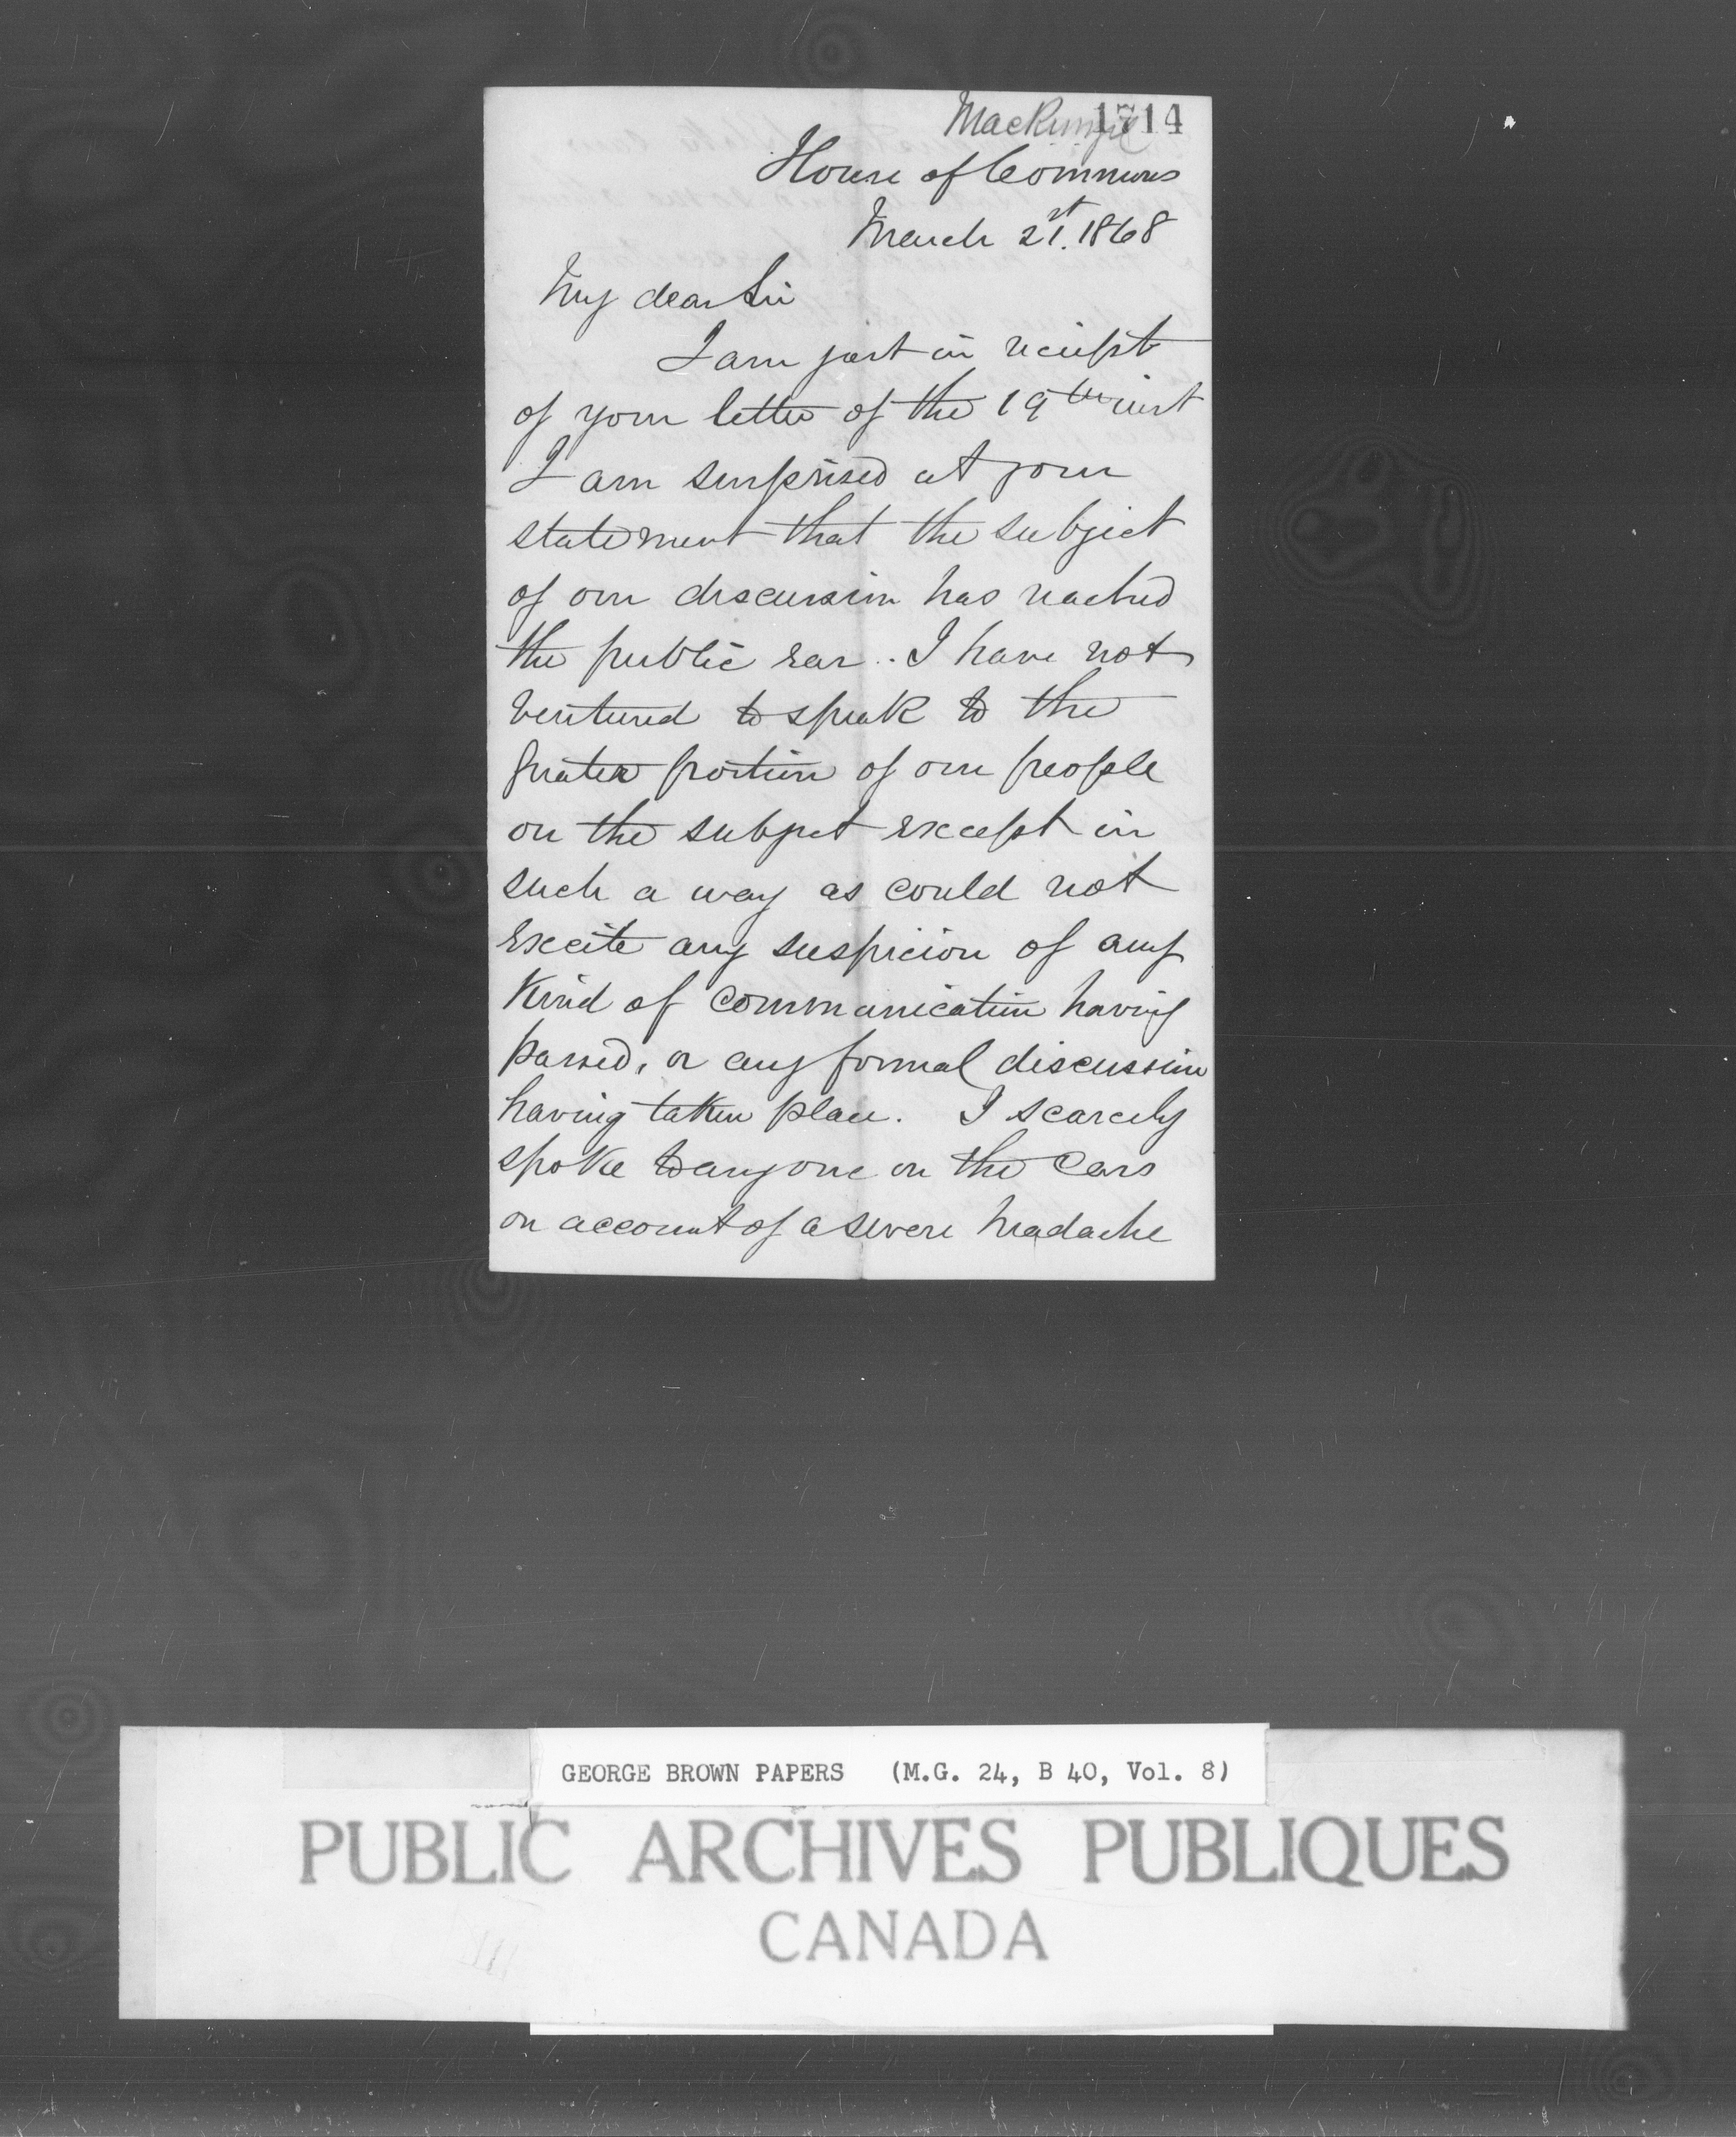 MacKenzie 1714
House of Commons
March 21st. 1868
My dear Sir
I am just in reciept
of your letter of the 19th inst
I am surprised at your
statement that the subject
of our discussion has reached
the public ear.. I have not
ventured to speak to the
greater portion of our people
on the subject except in
such a way as could not
excite any suspicion of any
kind of communication having
passed, or any formal discussion
having taken place. I scarcely
spoke to anyone on the cars
on account of a severe headache
GEORGE BROWN PAPERS (M.G. 24, B 40, Vol. 8)
PUBLIC ARCHIVES PUBLIQUES
CANADA